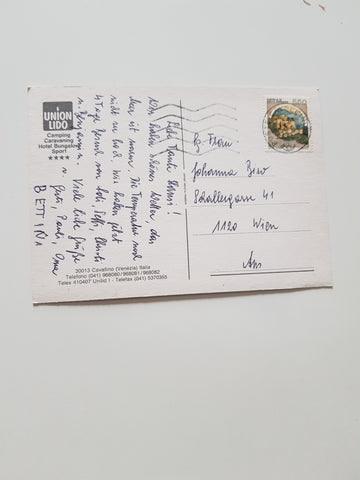 UNION
LIDO
Camping
Caravaning
Hotel Bungalow
Sport
****
Liebe Tante Hansi!
Wir haben schönes Wetter, das
Meer ist warm. Die Temperatur noch
nicht zu hoch. Wir haben jetzt
4 Tage Besuch von
n. Benjamin. Viele liebe Grüße
v. Gerti, Pauli, Oma
BETTINA
30013 Cavallino (Venezia) Italia
Telefono (041) 968080/968081/968082
Telex 410407 Unilid I - Telefax (041) 5370355
550
Frau
Johanna
Schallergasse 41
1120 Wien
Aus